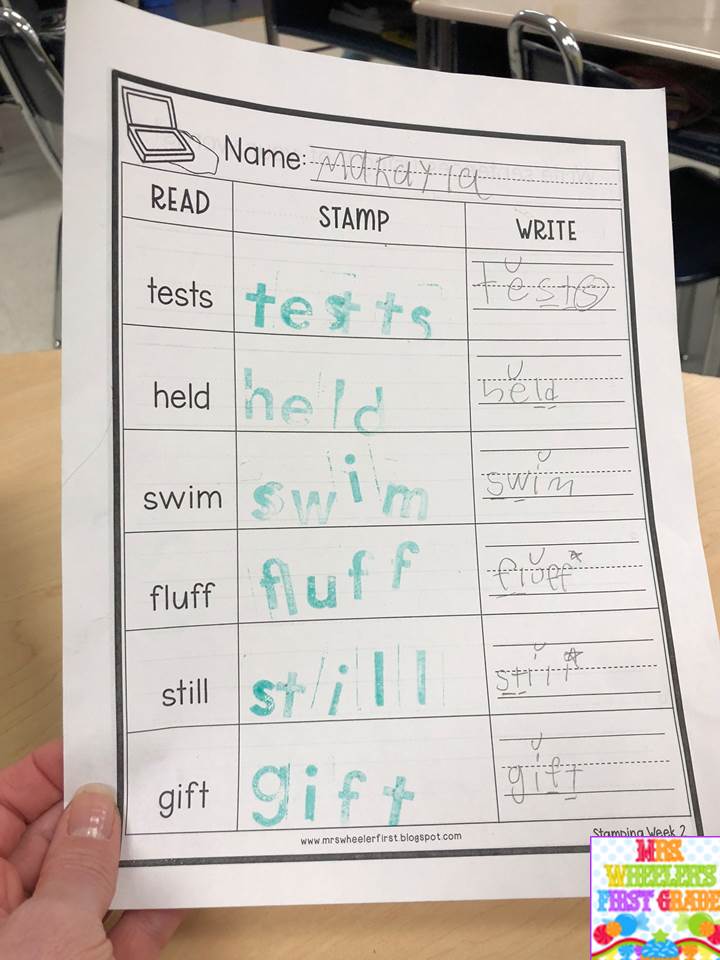 Name: Makayla
READ STAMP WRITE
tests tests tests
held held held
swim swim swim
fluff fluff fluff
still still still
gift gift gift
www.mrswheelerfirst.blogspot.com
Stamping Week 2
MRS
WHEELER'S
FIRST GRADE